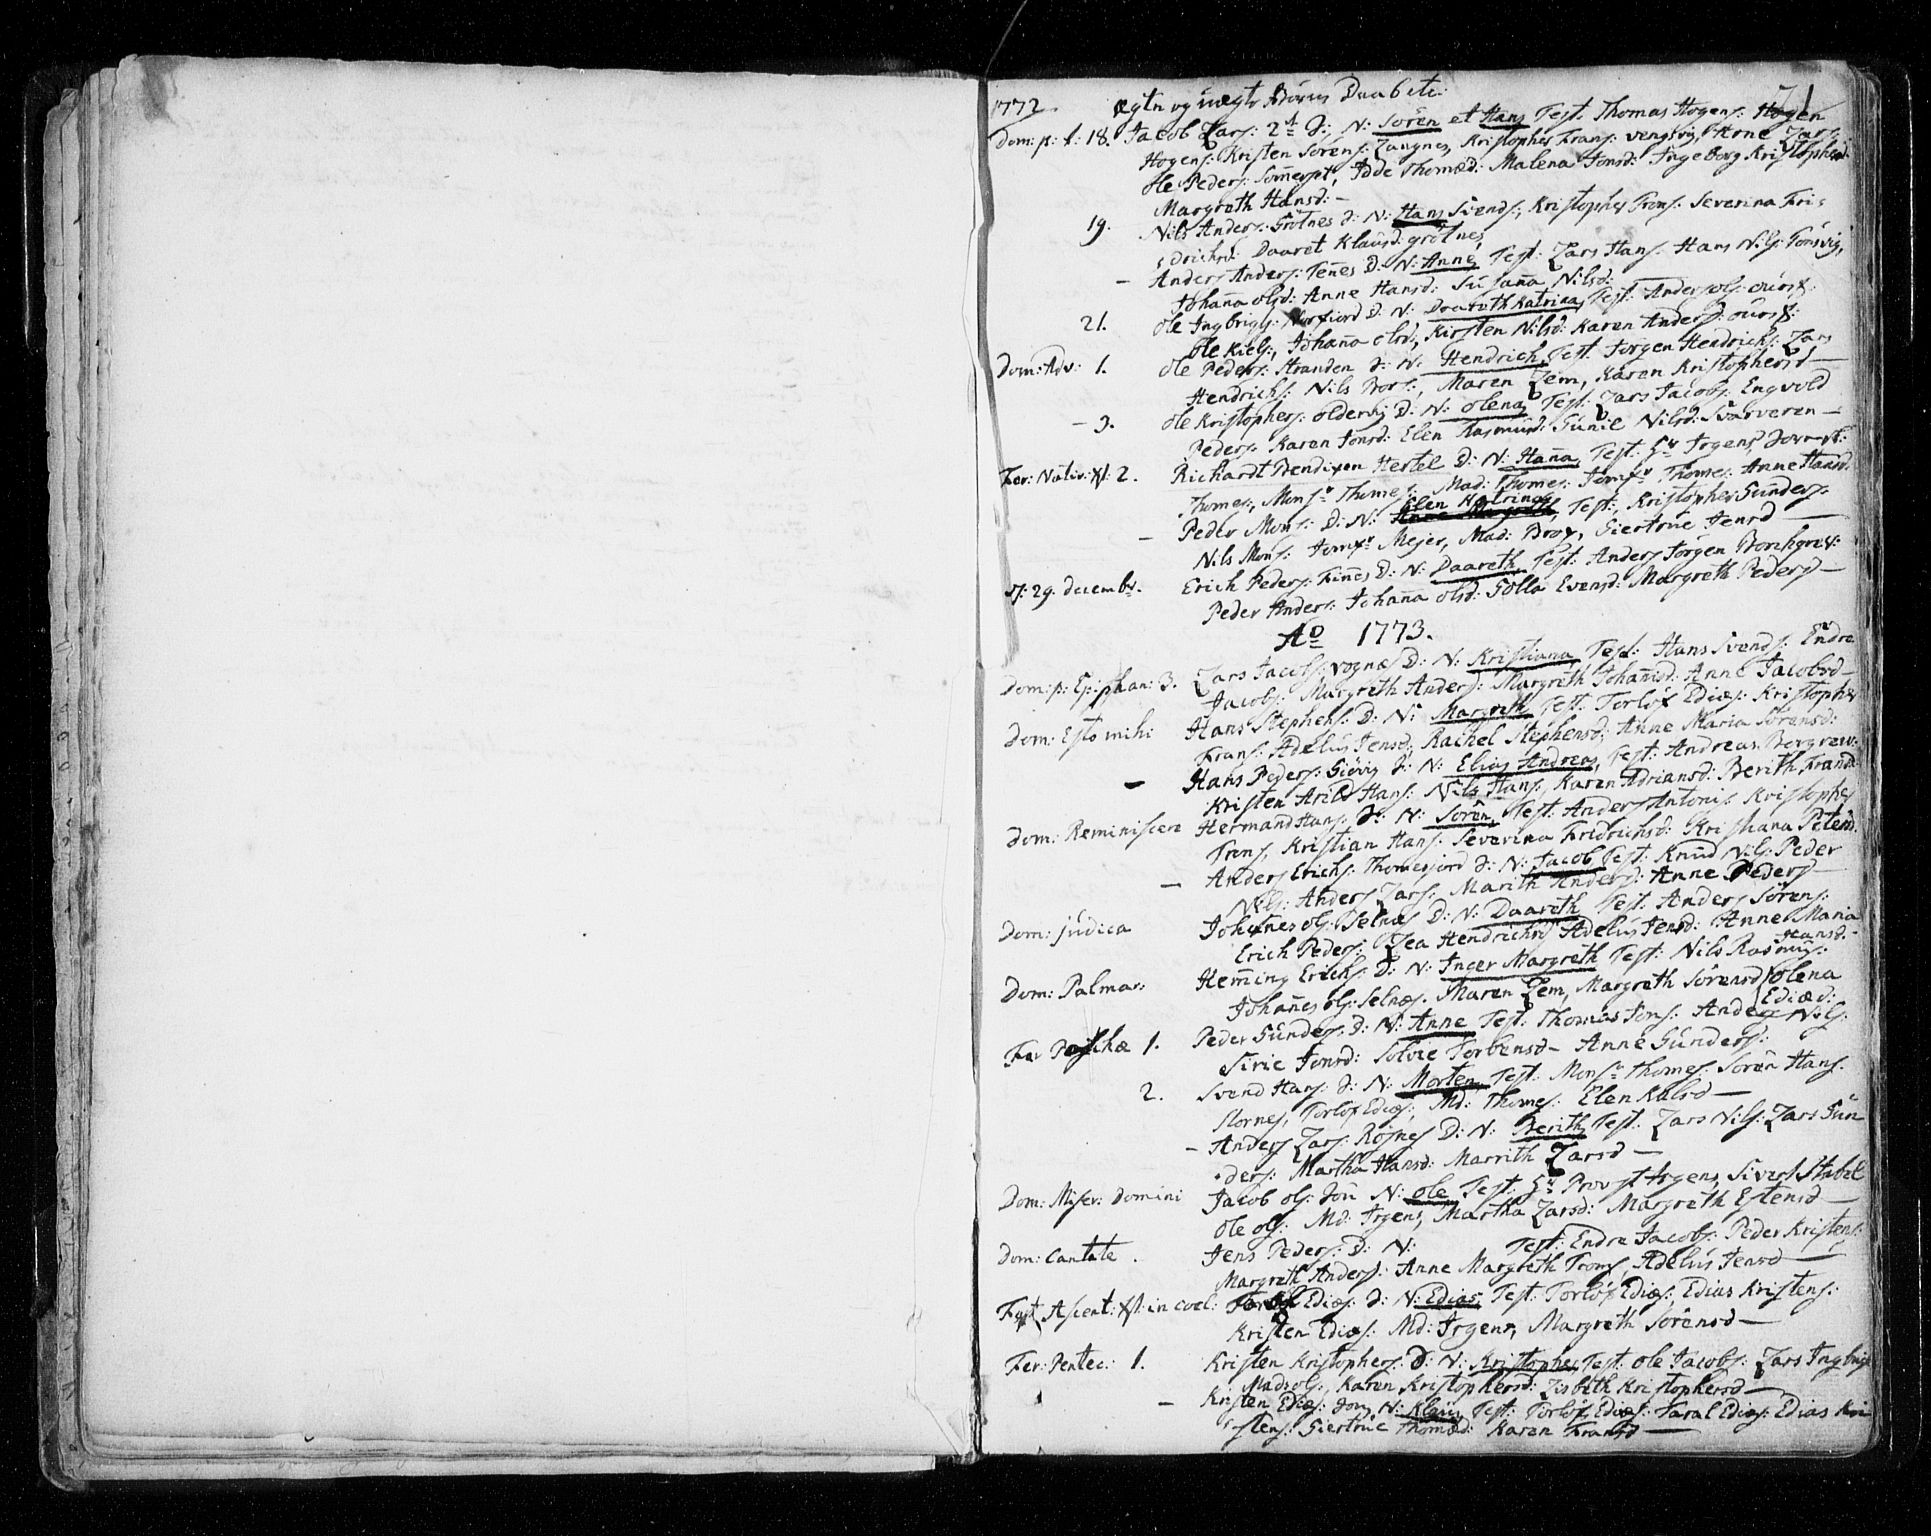 71
1772. ægte og uægte Börns Daab etc:
Dom: p: t: 18. Jacob Lars: 2 d: N: Sören et Hans Test. Thomas Hogens: Hogen
Hogens: Kristen Sörens: Langnes, Kristopher Frans: vengsvig, Arne Lars:
Ole Peders: Idde Thomæd: Malena Jonsd: Ingeborg Kristophersd:
Margreth Hansd: -
19. Nils Anders: Grötnes d: N: Hans Svends:, Kristopher Frans: Severina Fri-
drichsd: Daaret Klausd: grötnes,
- Anders Anders: Tennes D: N: Anne, Test: Lars Hans: Hans Nils: Tönsvig,
Johanna olsd: Anne Hansd: Susana Nilsd:
21. Ole Ingbrigs: Norfiord D: N: Daareth Katrina, Test: Anders ols:
Ole Kiels:, Johanna olsd:, Kirsten Nilsd: Karen Andersd:
Dom: Adv: 1. Ole Peders: Stranden d: N: Hendrich, Test: Jörgen Hendrichs: Lars
Hendrichs: Nils Mors:, Maren Lem, Karen Kristophersd -
- 3. Ole Kristophers: oldervig D: N: olena, Test: Lars Jacobs: Engvold
Peders: Karen Jonsd: Elen Rasmusd: Gunil Nilsd: Svarveren -
Fer: Nativ: Xt: 2. Richardt Bendixen Hertel D: N: Hanna, Test: Hr Irgens,
Thomes:, Monsr Thomes: Mad: Thomes: Jomfr Thomes: Anne Hansd:
- Peder Mons: D: N: Elen Hatrina, Test:, Kristopher Gunders:
Nils Mons: Jomfr Mejer, Mad: Brox, Giertrue Jensd -
d: 29 decembr. Erich Peders: Finnes D: N: Daareth Test: Anders Jörgen Borchgrev:
Peder Anders: Johanna olsd: Golla Evensd: Margreth Pedersd -
Ao 1773.
Dom: p: Epiphan: 3. Lars Jacobs: vognæs D: N: Kristiana, Test: Hans Svends: Endre
Jacobs: Margreth Andersd: Margreth Johansd: Anne Jacobsd -
Dom: Esto mihi Hans Stephens: D: N: Margreth Test: Torlöf Ediæs: Kristopher
Frans: Adelus Jensd: Rachel Stephensd: Anne Maria Sörensd:
- Hans Peders: Giövig d: N: Elias Andreas, Test: Andreas Borgrew:
Kristen Arils Hans: Nils Hans: Karen Adriansd: Berith Fransd:
Dom: Reminiscere Hermand Hans: d: N: Sören, Test: Anders Antonis: Kristopher
Frens, Kristian Hans: Severina Fridrichsd: Kristiana Petersd.
- Anders Erichs: Thomesjord d: N: Jacob Test: Knud Nils: Peder
Nils: Anders Lars: Marith Andersd: Anne Pedersd -
Dom: Judica Johannes ols: Selnæs D: N: Daareth Test: Anders Sörens:
Erich Peders: Lea Hendrichsd Adelus Jensd: Anne Maria
Hansd.
Dom: Palmar: Hemming Erichs: D: N: Inger Margreth Test: Nils Rasmus:
Johannes ols: Selnæs. Maren Lem, Margreth Sörensd olena
Ediæd:
Fer Paschæ 1. Peder Gunders: D: N: Anne Test: Thomas Jons: Anders Nils:
Sirie Jonsd: Solvie Torbensd - Anne Gundersd:
2. Svend Hans: d: N: Morten, Test: Monsr Thomes: Sören Hans:
Slornes, Torlöf Ediæs:, Md: Thomes: Elen Kulsd -
- Anders Lars: Röjnes D: N: Berith, Test: Lars Nils: Lars Gun
ders: Martha Hansd: Marrith Larsd -
Dom: Miser: Domini Jacob ols: Sön N: ole Test: Hr Provst Irgens, Sivert Stabel
Ole ols: Md: Irgens, Martha Larsd: Margreth Estensd -
Dom: Cantate. Jens Peders: D: N: Test: Endre Jacobs: Peder Kristens:
Margreth Andersd: Anne Margreth Froms, Adelus Jensd -
Fest Ascent: Xt: in coel: Torlöf Ediæs: d: N: Edias, Test: Torlöf Ediæs:, Edias Kristens:
Kristen Ediæs: Md: Irgens, Margreth Sörensd -
Fer: Pentec: 1. Kristen Kristophers: D: N: Kristopher, Test: ole Jacobs: Lars Ingbrigs
Mads ols:, Karen Kristophersd: Lisbeth Kristophersd -
- Kristen Ediæs: Sön, N: Klaus, Test: Torlöf Ediæs: Taral Ediæs: Edias Kri
stens: Giertrue Thomæd: Karen Fransd -